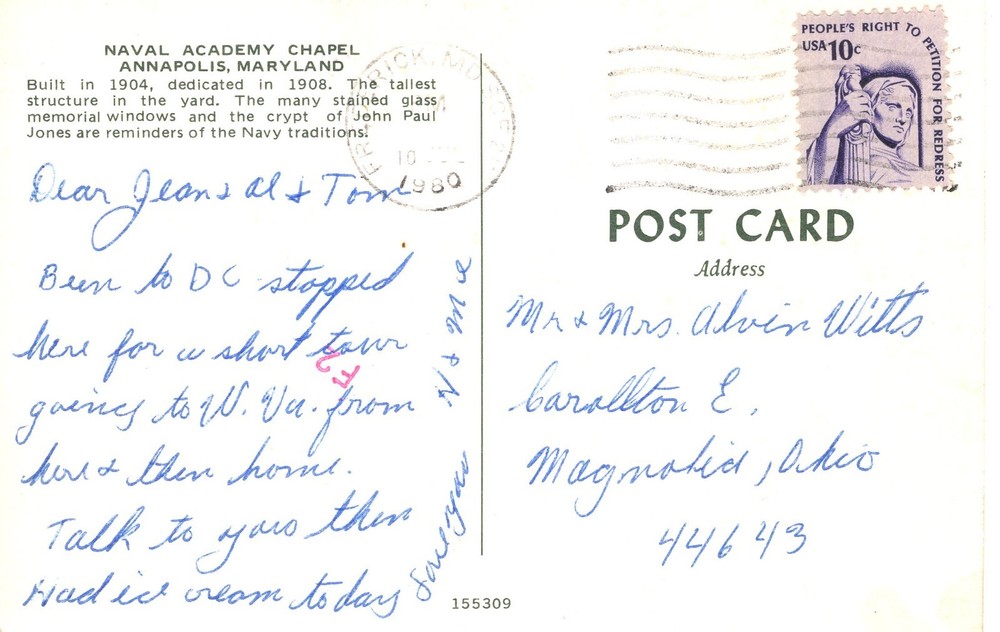 NAVAL ACADEMY CHAPEL
ANNAPOLIS, MARYLAND
Built in 1904, dedicated in 1908. The tallest
structure in the yard. The many stained glass
memorial windows and the crypt of John Paul
Jones are reminders of the Navy traditions.
Dear Jean & Al & Tom
Been to DC stopped
here for a short tour
going to W. Va. from
here & then home.
Talk to you then
Had ice cream today
Love you
N & M
155309
MD
10
1980
PEOPLE'S RIGHT TO PETITION FOR REDRESS
USA 10c
POST CARD
Address
Mr & Mrs. Alvin Witts
Carollton E.
Magnolia, Ohio
44643